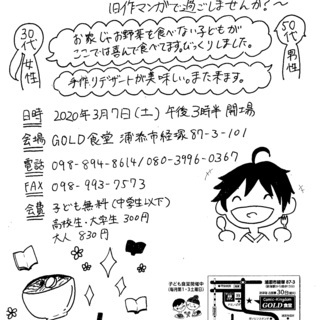 旧作マンガで過ごしませんか?〜
30代女性
お家じゃお野菜を食べない子どもが
ここでは喜んで食べてます。びっくりしました。
50代男性
手作りデザートが美味しい。また来ます。
日時 2020年3月7日(土) 午後3時半 開場
会場 GOLD食堂 浦添市経塚87-3-101
電話 098-894-8614/080-3996-0367
FAX 098-993-7573
会費 子ども無料(中学生以下)
高校生・大学生 300円
大人 830円
子ども食堂開催中
(毎月第1・3土曜日)
浦添市経塚 87-3
GOLD食堂